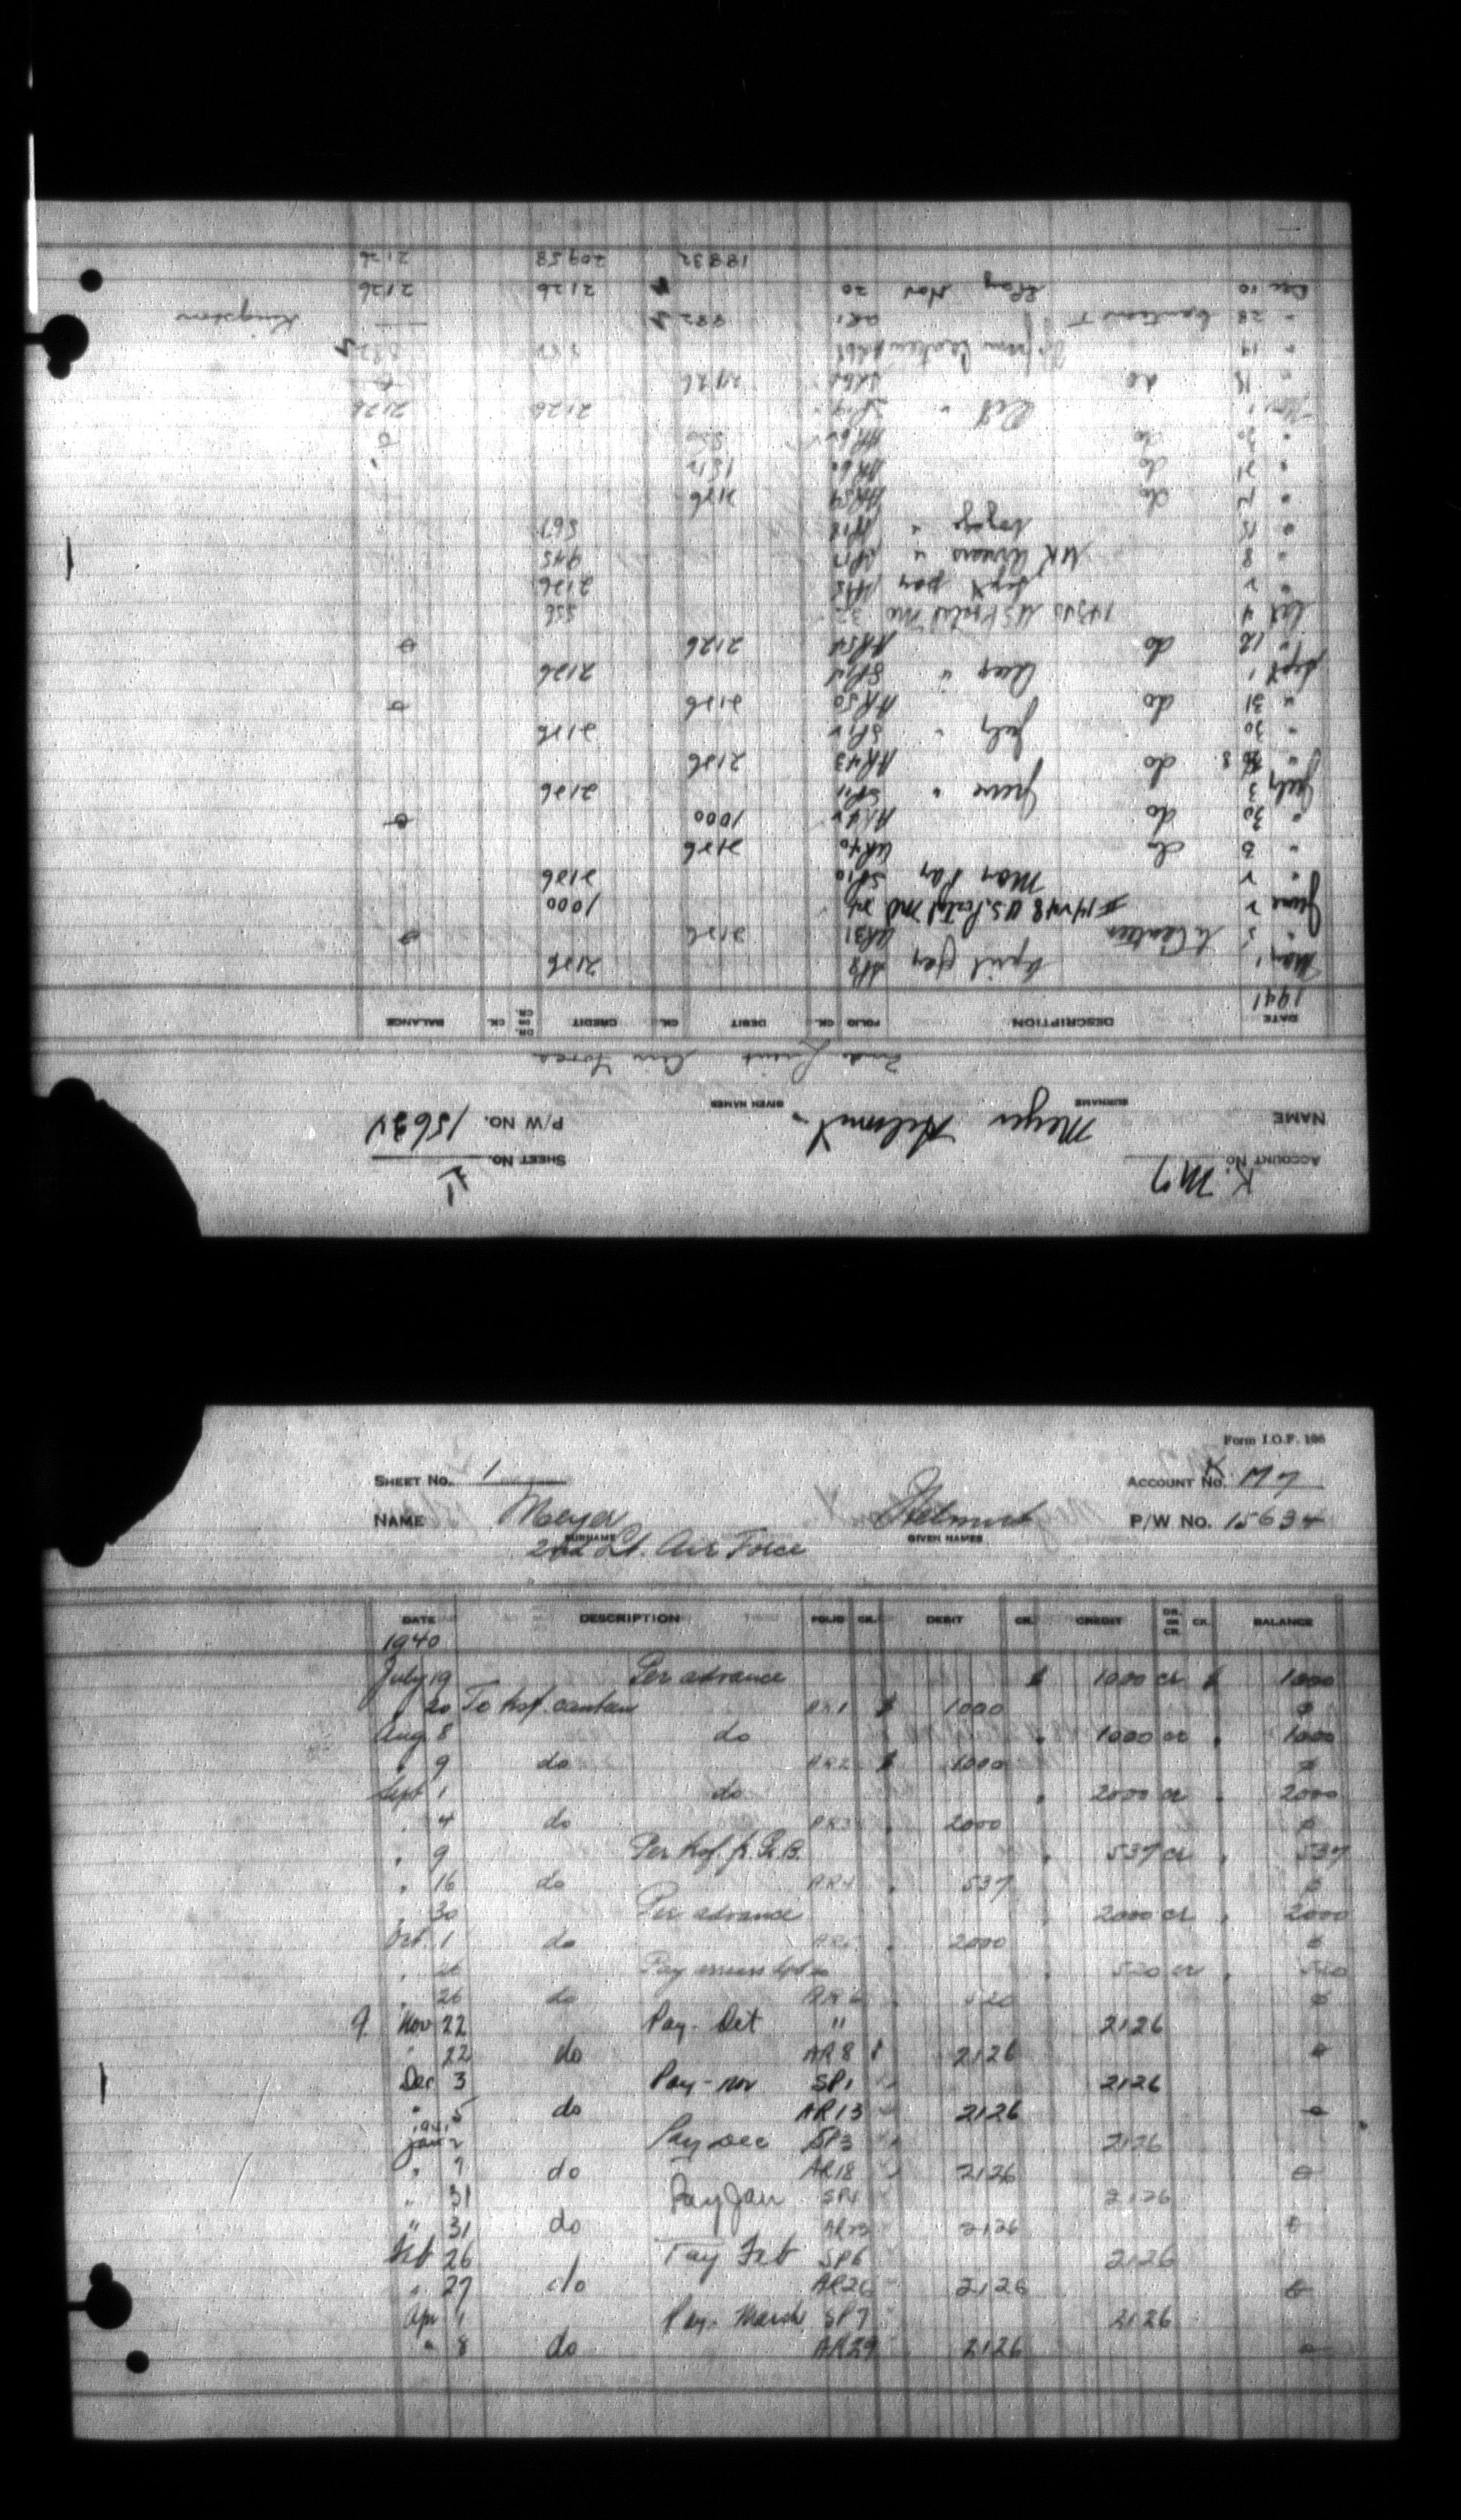 Form I.O.F. 106
SHEET No. 1 ACCOUNT No. K M7
NAME Meyer Helmut P/W No. 15634
SURNAME GIVEN NAMES
2nd Lt. Air Force
DATE DESCRIPTION FOLIO CK. DEBIT CK. CREDIT DR. OR CR. CK. BALANCE
1940
July 19 Per advance $ 1000 cr $ 1000
" 20 To trsf. canteen AR1 $ 1000 ø
Aug 8 do " 1000 cr " 1000
" 9 do AR2 $ 1000 ø
Sept 1 do " 2000 cr " 2000
" 4 do AR3 " 2000 ø
" 9 Per trsf. fr. " 537 cr " 537
" 16 do AR4 " 537 ø
" 30 Per advance " 2000 cr " 2000
Oct. 1 do " 2000 ø
" Pay " 520 cr " 520
" 26 do AR6 " 520 ø
Nov 22 Pay - Oct " 2126
" 22 do AR8 $ 2126 ø
Dec 3 Pay - Nov SP1 2126
" 5 do AR13 2126 ø
Jan 2 Pay Dec SP3 2126
" 7 do AR18 2126 ø
" 31 Pay Jan SP4 2126
" 31 do AR23 2126 ø
Feb 26 Pay Feb SP6 2126
" 27 do AR26 2126 ø
Apr 1 Pay. March SP7 2126
" 8 do AR29 2126 ø
ACCOUNT No. K. M7 SHEET No. II
NAME Meyer Helmut P/W No. 15634
SURNAME GIVEN NAMES
2nd Lieut Air Force
DATE DESCRIPTION FOLIO CK. DEBIT CK. CREDIT DR. OR CR. CK. BALANCE
1941
May 1 April Pay SP8 2126
" 5 To Canteen AR31 2126 ø
June 2 #14248 U.S. Postal MO 24 1000
" 2 May Pay SP10 2126
" 6 do AR40 2126
" 30 do AR42 1000 ø
July 3 June " SP11 2126
" do AR43 2126
" 30 July " SP12 2126
" 31 do AR50 2126 ø
Sept 1 Aug " SP14 2126
" 12 do AR54 2126 ø
Oct 4 14350 US Postal Mo 32 556
" 2 Sept pay 2126
" 8 UK Arrears " 945
" 15 " 567
" do AR59 2126
" 21 do AR60 1512
" 30 do
Nov 1 Oct " 2126 2126
" 15 do 2126 ø
" 19 Canteen
" 28 Canteen T AR1 882 — Kingston
Dec 10 Pay Nov 20 2126 2126
18832 20958 2126